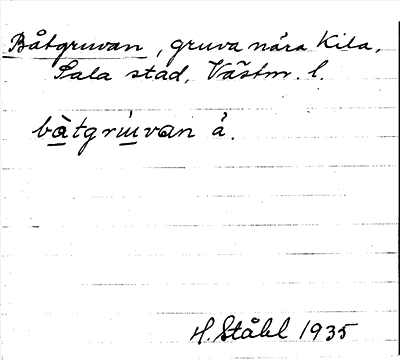 Båtgruvan, gruva nära Kila,
Sala stad, Västm. l.
bå̀tgrúvan å̀.
H. Ståhl 1935